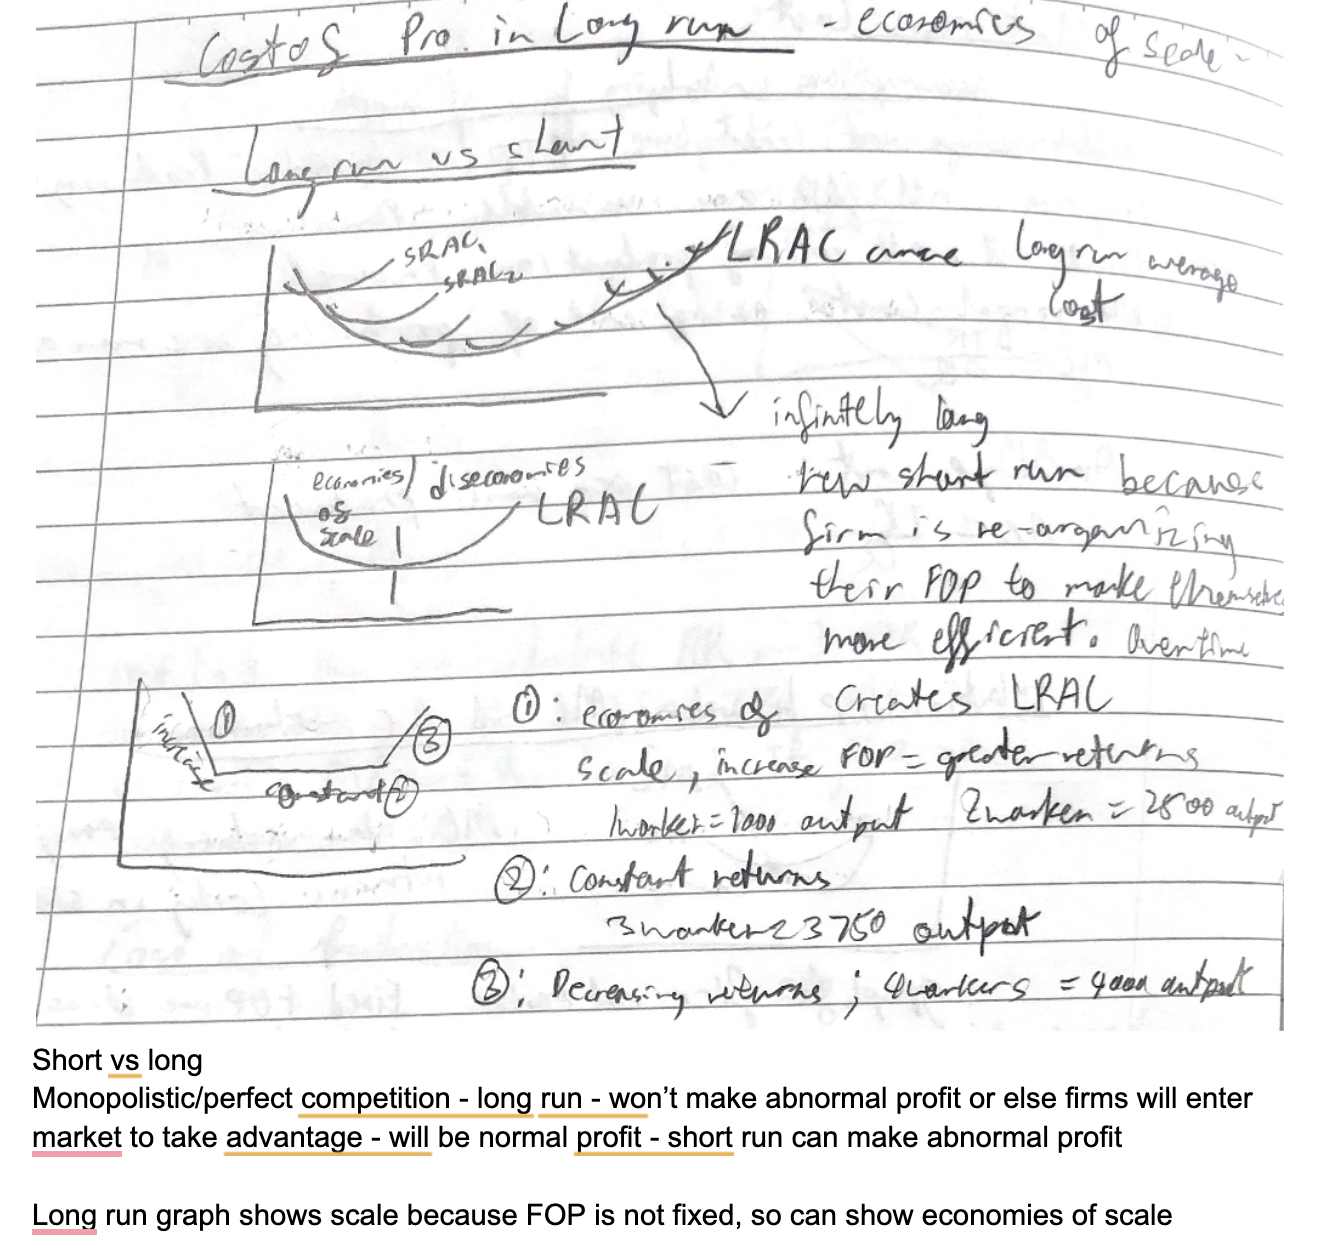 Costs of Pro. in Long run - economics of scale -
Long run vs short
SRAC1
SRAC2
LRAC curve long run average
cost
infinitely long
new short run because
firm is re-organizing
their FOP to make themselve
more efficient. Overtime
creates LRAC
economies / diseconomies
of
scale
LRAC
increase
①
③
constant ②
①: economies of
scale, increase FOP = greater returns
1worker = 1000 output 2worker = 2500 output
②: Constant returns
3worker = 3750 output
③: Decreasing returns ; 4workers = 4000 output
Short vs long
Monopolistic/perfect competition - long run - won’t make abnormal profit or else firms will enter
market to take advantage - will be normal profit - short run can make abnormal profit
Long run graph shows scale because FOP is not fixed, so can show economies of scale